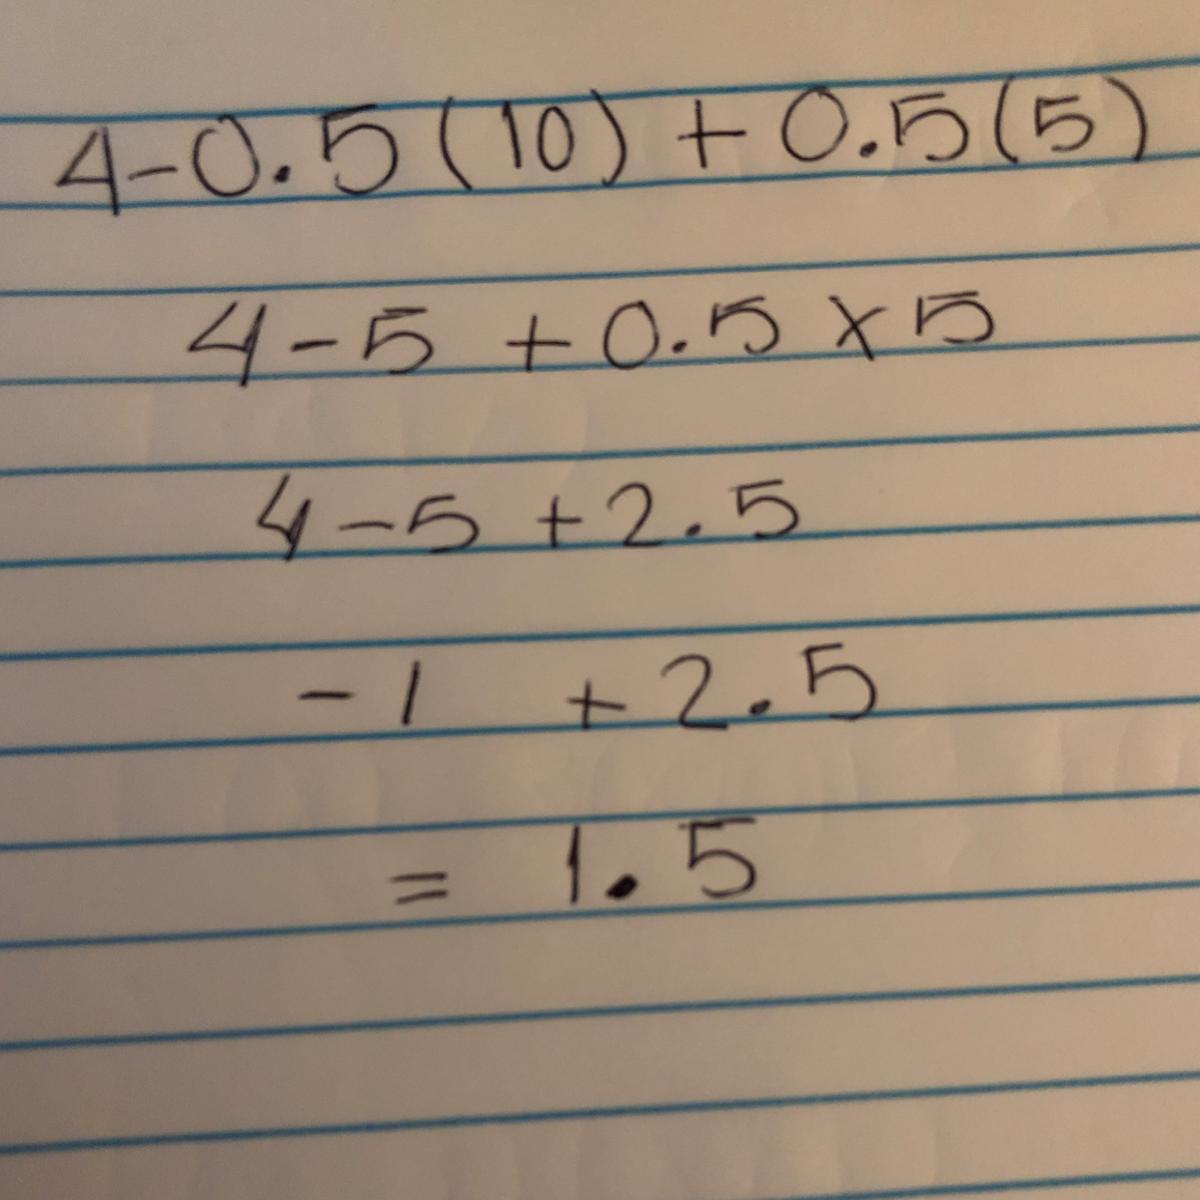 4-0.5(10) + 0.5(5)
4-5 + 0.5 x 5
4-5 + 2.5
-1 + 2.5
= 1.5